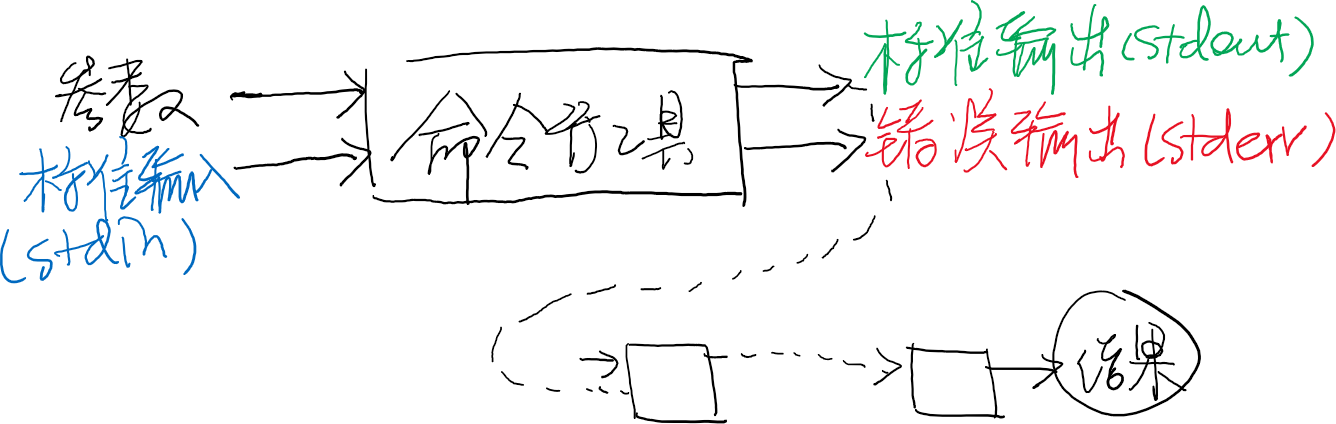 参数
标准输入
(stdin)
命令行工具
标准输出(stdout)
错误输出(stderr)
结果